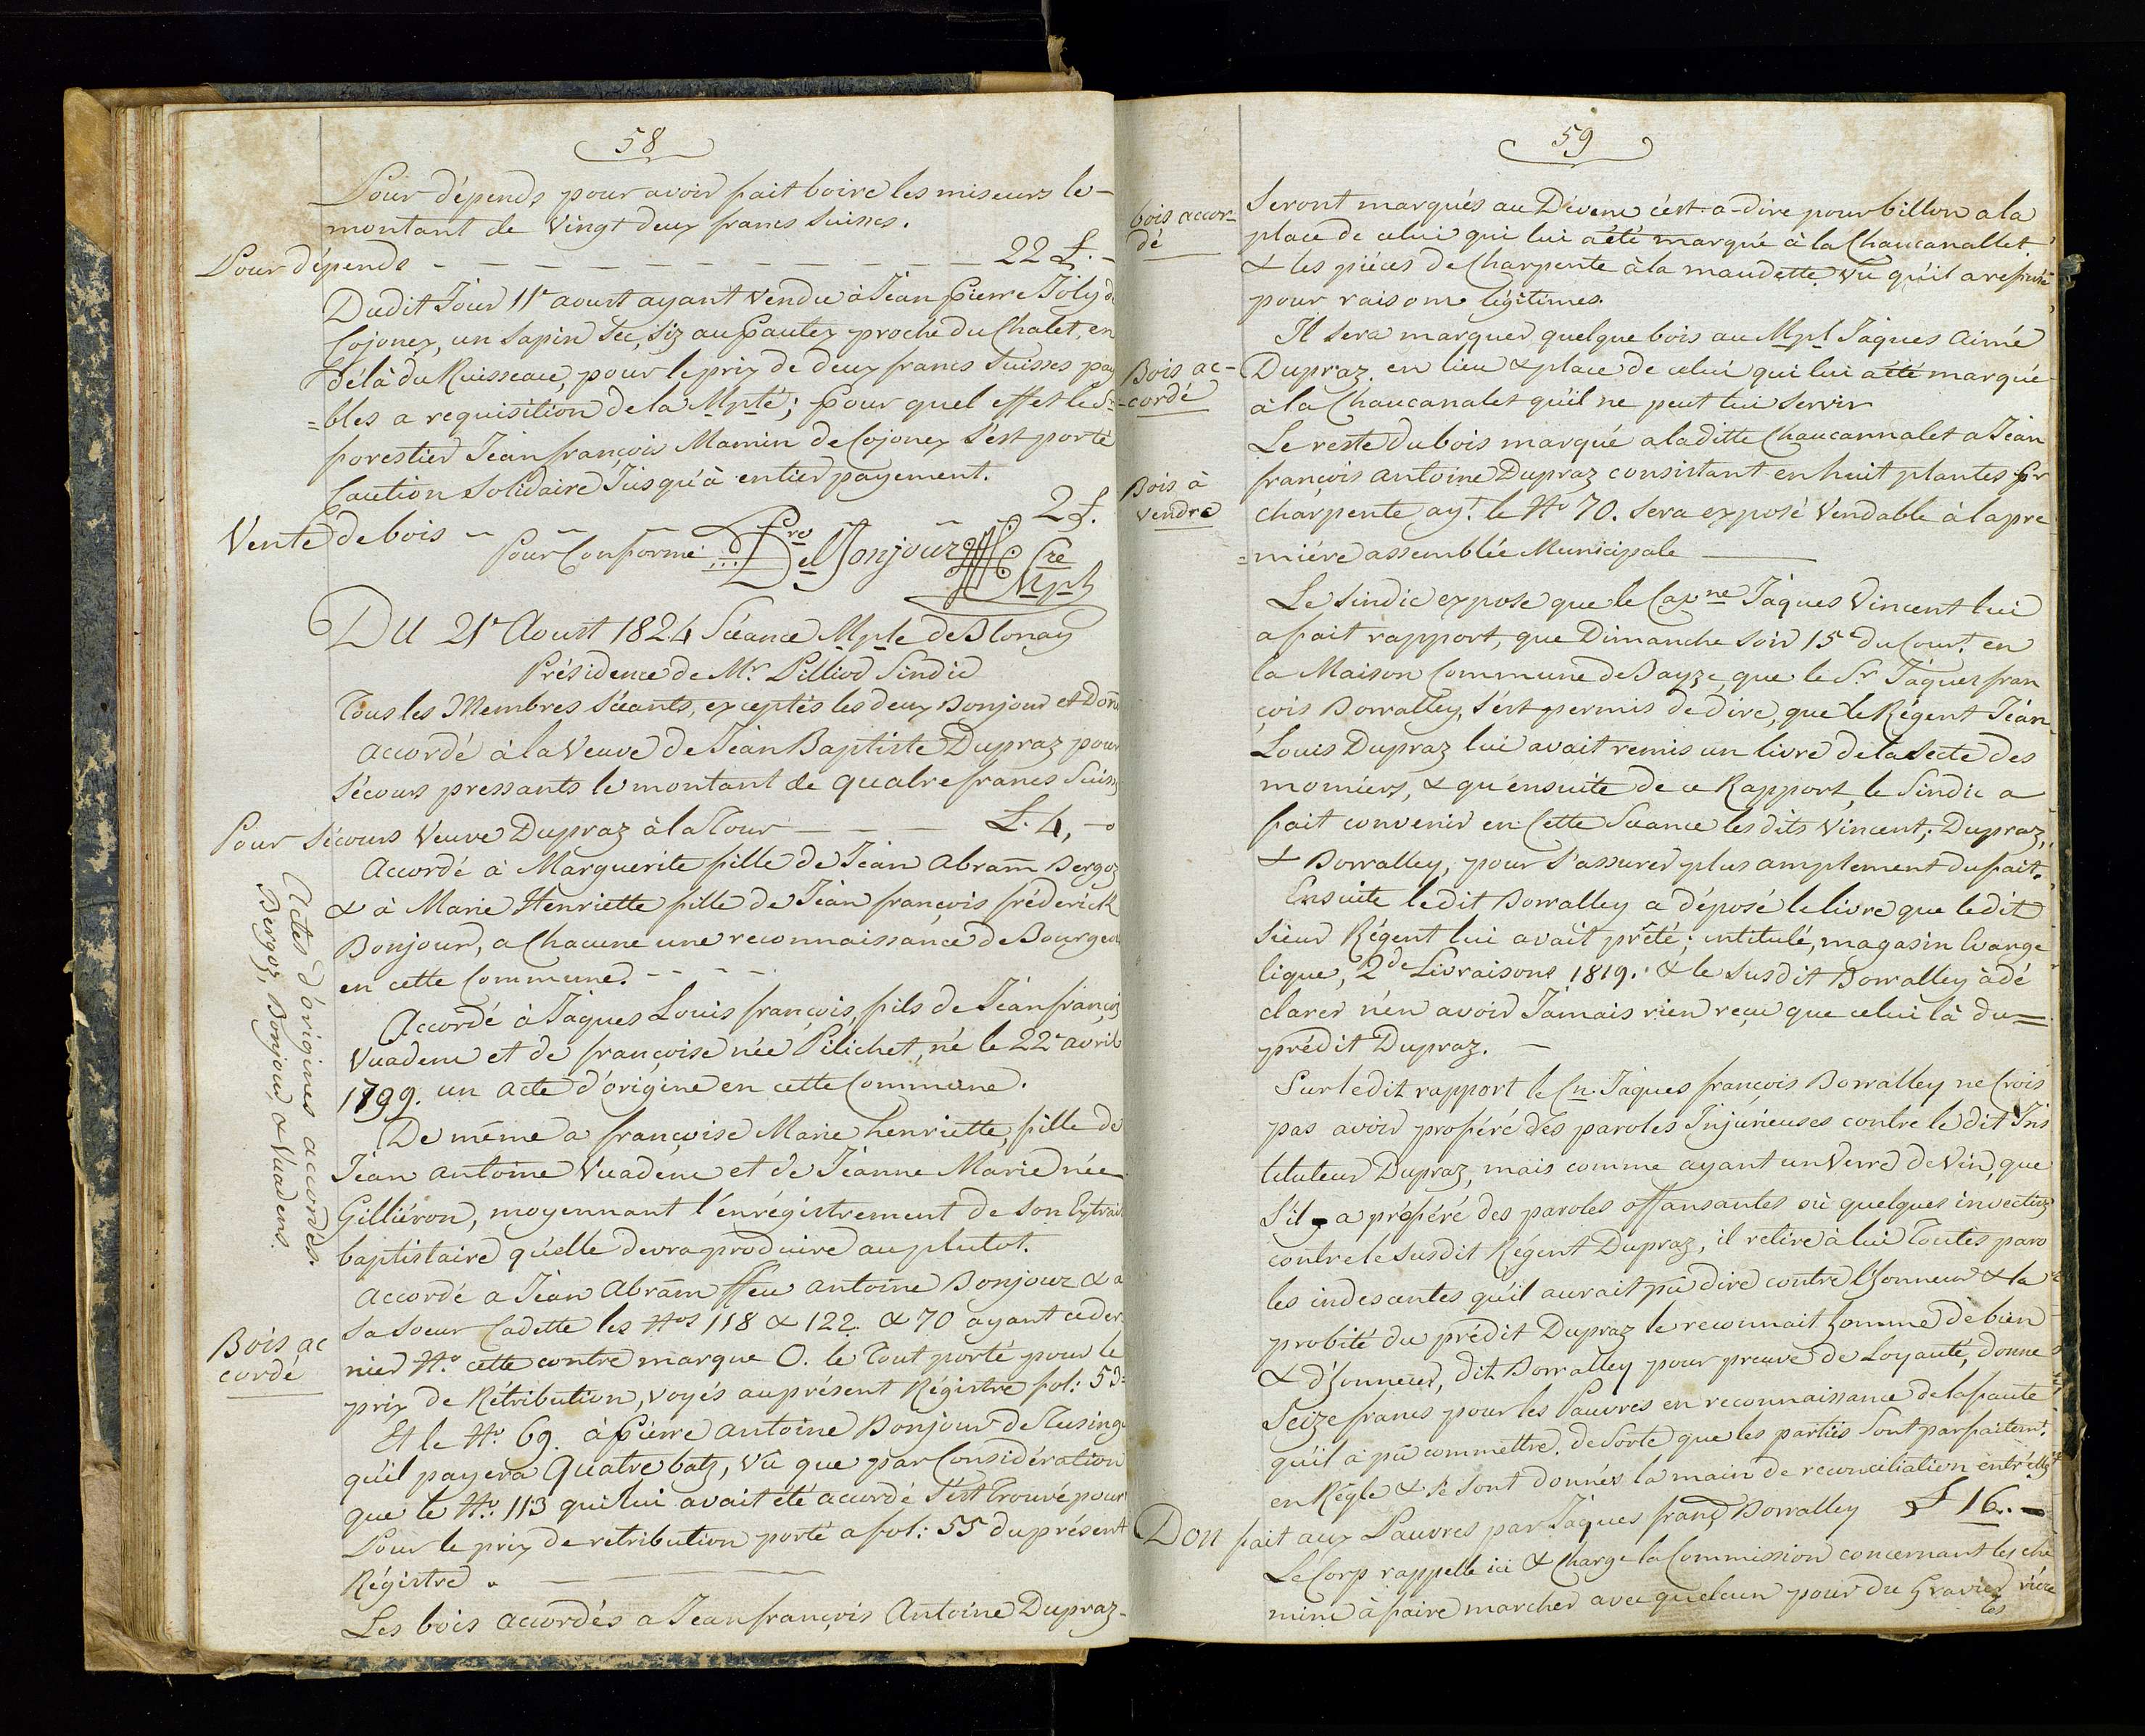 58
Pour dépends pour avoir fait boire les miseurs le
montant de Vingt deux francs Suisses.
Pour dépends - - - - - - - - - - 22 £. -
Dudit Jour 11e aoust ayant vendu à Jean Pierre Joly de
Cojonex, un sapin sec, siz au Pautex proche du Chalet, en
délà du Ruisseau, pour le prix de deux francs Suisses paya
=bles a requisition de la Mplté; pour quel effet le Sr
forestier Jean françois Mamin de Cojonex s'est porté
Caution Solidaire Jusqu'à entier payement.
Vente de bois - - - - 2 £.
Pour Conforme: Bonjour Cre Mpl
DU 21e Aoust 1824 Séance Mple de Blonay
Présidence de Mr. Pilliod Sindic
Tous les Membres Séants, exceptés les deux Bonjour et
Accordé à la Veuve de Jean Baptiste Dupraz pour
sécours pressants le montant de quatre francs Suiss
Pour sécours Veuve Dupraz à la Tour - - - L. 4, -
Accordé à Marguerite fille de Jean Abram Bergoz
& à Marie Henriette fille de Jean françois fréderick
Bonjour, a Chacune une reconnaissance de Bourgeois
en cette Commune. - - - -
Actes d'origines accordés.
Bergoz, Bonjour & Vuadens.
Accordé à Jaques Louis françois, fils de Jean françois
Vuadens et de françoise née Pilichet, né le 22e avril
1799. un acte d'origine en cette Commune.
De même a françoise Marie henriette, fille de
Jean Antoine Vuadens et de Jeanne Marie née
Gilliéron, moyennant l'énrégistrement de son Extrait
baptistaire qu'elle devra produire au plutot.
Bois ac
cordé
Accordé a Jean Abram ffeu Antoine Bonjour & a
Sa soeur Cadette les Nos 118 & 122. & 70 ayant ce der
nier No. cette contre marque O. le Tout porté pour le
prix de Rétribution, voyés au présent Régistre fol: 53.
Et le No. 69. à Pierre Antoine Bonjour de Tusinge
qu'il payera Quatre batz, vû que par Considération
que le No. 113 qui lui avait été accordé s'est trouvé pour
Pour le prix de retribution porté a fol: 55 du présent
Régistre.
Les bois accordés a Jean françois Antoine Dupraz-
59
bois accor-
dé
Seront marqués au Devens c'est-a-dire pour billon a la
place de celui qui lui a été marqué à la Chaucanallet
& les piéces de Charpente à la maudette, vû qu'il a refusé
pour raisons légitimes.
Bois ac-
cordé
Il sera marquer quelque bois au Mpl Jaques Aimé
Dupraz en lieu & place de celui qui lui a été marqué
à la Chaucanalet qu'il ne peut lui Servir
Bois à
vendre
Le reste du bois marqué a la ditte Chaucannalet a Jean
françois Antoine Dupraz consistant en huit plantes pr
charpente ayt. le No 70. sera exposé Vendable à la pre
=miére assemblée Municipale
Le Sindic expose que le Capne Jaques Vincent lui
a fait rapport, que Dimanche Soir 15e du Court. en
la Maison Commune de Bayze, que le Sr Jaques fran
çois Borralley, s'est permis de dire, que le Régent Jean
Louis Dupraz lui avait remis un livre de la Secte des
momiers, & qu'ensuite de ce Rapport, le Sindic a
fait convenir en Cette Séance les dits Vincent, Dupraz,
& Borralley, pour s'assurer plus amplement du fait.
Ensuite ledit Borralley a déposé le livre que ledit
sieur Régent lui avait prêté; intitulé, magasin Evange
lique, 2de Livraisons 1819. & le susdit Borralley à dé
clarer n'en avoir Jamais rien reçu que celui là du=
prédit Dupraz. -
Sur ledit rapport le Cn. Jaques françois Borralley ne Crois
pas avoir proféré des paroles Injurieuses contre le dit Ins
tituteur Dupraz, mais comme ayant un Verre de Vin, que
s'il a proféré des paroles offansantes ou quelques invectives
contre le susdit Régent Dupraz, il retire à lui Toutes paro
les indescentes qu'il aurait pû dire contre l'honneur & la
probité du prédit Dupraz le reconnait homme de bien
& d'honneur, dit Borralley pour preuve de Loyauté, donne
Seize francs pour les Pauvres en reconnaissance de la faute
qu'il a pû commettre. de sorte que les parties sont parfaitemt.
en Régle & se sont donnés la main de reconciliation entr'elles
Don fait aux Pauvres par Jaques franç Borralley £ 16. -
Le Corp rappelle ici & Charge la Commission concernant les che
mins à faire marcher avec quelcun pour du Gravier riére
les